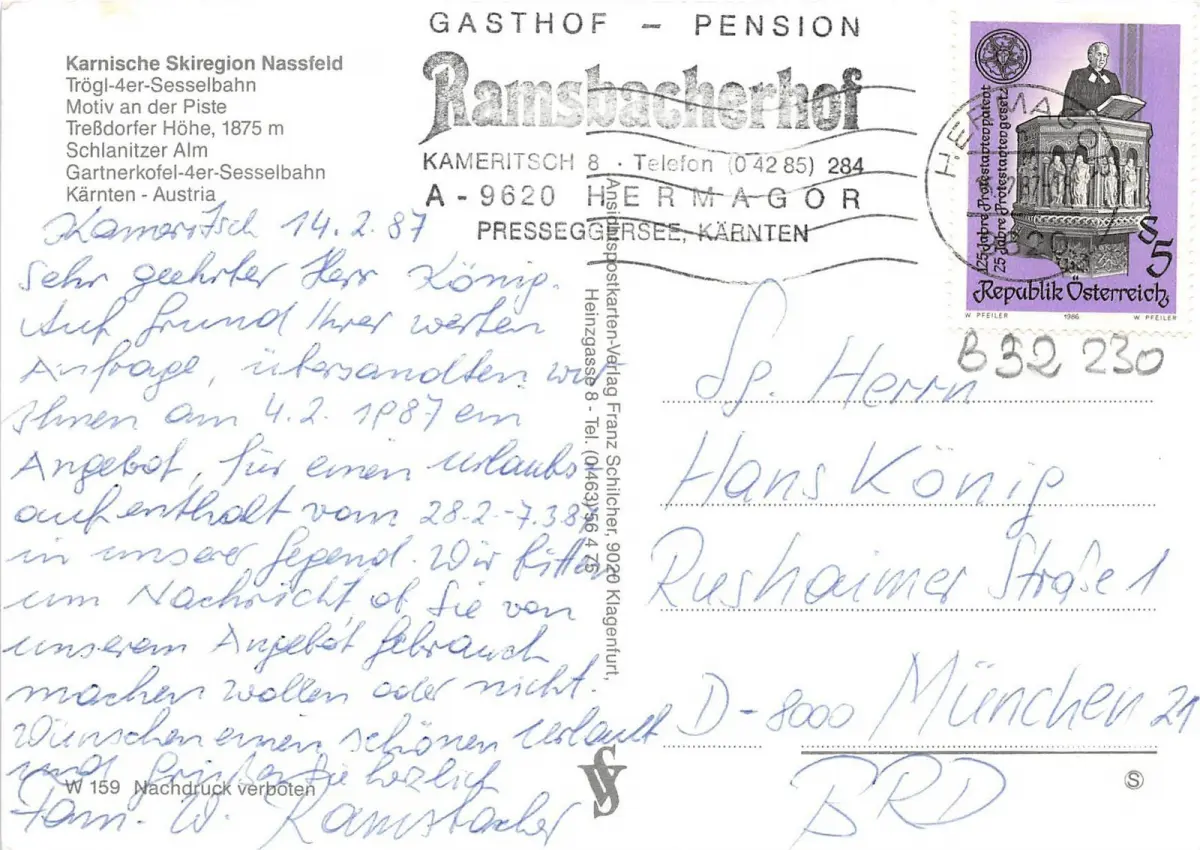 Karnische Skiregion Nassfeld
Trögl-4er-Sesselbahn
Motiv an der Piste
Treßdorfer Höhe, 1875 m
Schlanitzer Alm
Gartnerkofel-4er-Sesselbahn
Kärnten - Austria
GASTHOF - PENSION
Ramsbacherhof
KAMERITSCH 8 · Telefon (0 42 85) 284
A - 9620 HERMAGOR
PRESSEGGERSEE, KÄRNTEN
HERMAGOR
125 Jahre Protestantenpatent
25 Jahre Protestantengesetz
S 5
Republik Österreich
W PFEILER 1986 W PFEILER
B 32 230
Kameritsch 14.2.87
Sehr geehrter Herr König.
Auf Grund Ihrer werten
Anfrage, übersandten wir
Ihnen am 4.2. 1987 ein
Angebot, für einen Urlaubs-
aufenthalt vom 28.2.-7.3.87
in unserer Gegend. Wir bitten
um Nachricht, ob Sie von
unserem Angebot Gebrauch
machen wollen oder nicht.
Wünschen einen schönen Urlaub
und grüßen Sie herzlich
Fam. W. Ramsbacher
W 159 Nachdruck verboten
Ansichtspostkarten-Verlag Franz Schilcher, 9020 Klagenfurt,
Heinzgasse 8 - Tel. (0463) 56 4 75
Sg. Herrn
Hans König
Rushaimer Straße 1
D - 8000 München 21
BRD
S